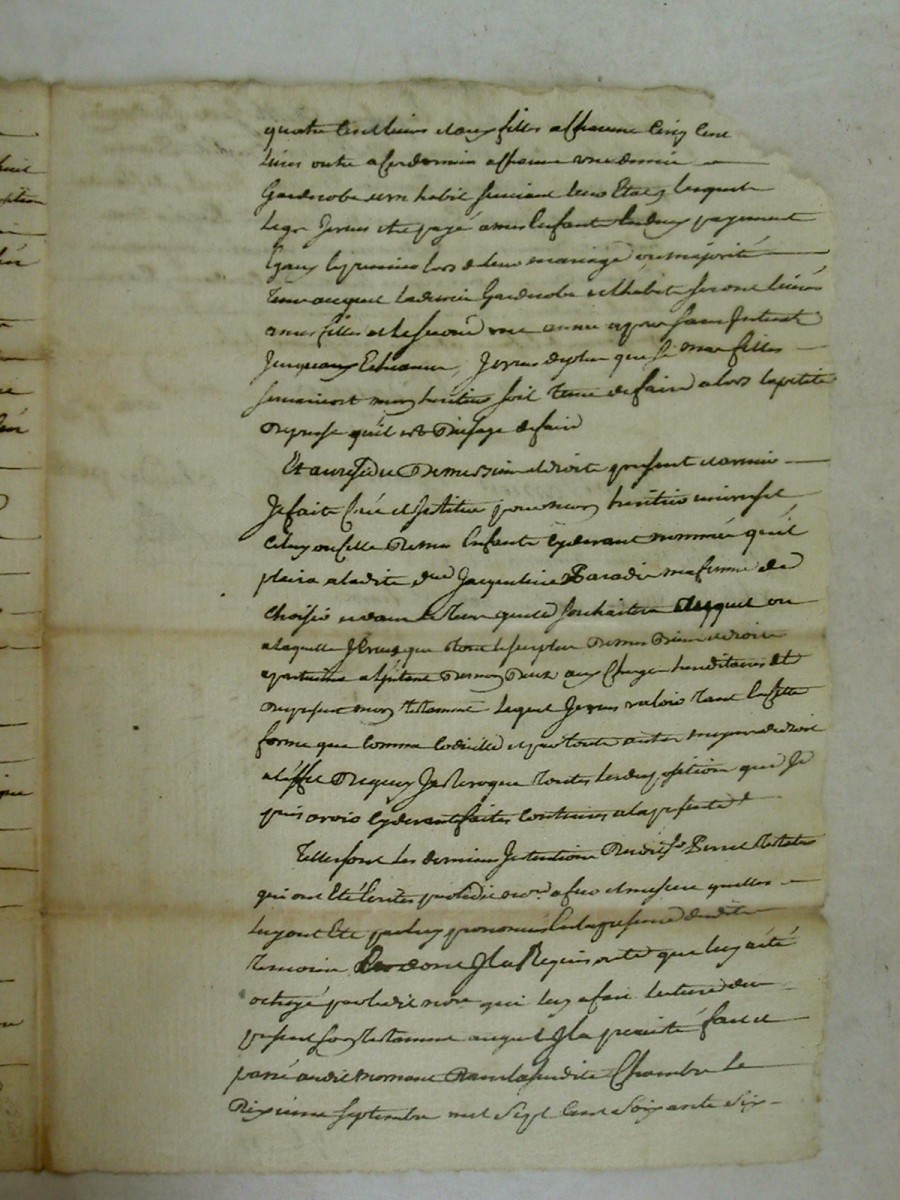 quatre cent livres et aux filles a chacune Cinq Cent
livres outre a ces dernier a chacune une demie
Garderobe et un habit suivant leur Etat, lesquels
Legs Je veux etre payé a mes Enfants En deux payement
Egaux le premier lors de leur mariage ou majorité
Tems auquel la demie Garderobe et l'habit seront livrés
a mes filles et le second une année apres sans Interest
Jusqu'aux Echeances, Je veux de plus que si mes filles
se marient mon heritier soit Tenu de faire alors la petite
Depense qu'il est D'usage de faire
Et au residu De mes biens et droits present et avenir
J'ai fait Crée et Institue pour mon heritier universel
Celuy ou celle De mes Enfants Cydevant nommés qu'il
plaira a ladite Jacqueline Paradis ma femme de
Choisir et dans le tems quelle souhaitera auquel ou
a laquelle Je veux que tout le surplus De mes Biens et droits
apartienne a l'instant De mon Decez aux Charges hereditaires et
Du present mon testament lequel Je veux valoir tant En cette
forme que Comme Codicille et par toute autre moyen de droit
a l'effet Dequoy Je Revoque toutes les dispositions que Je
puis avoir Cydevant faites Contraires a la presente
Telles sont Les dernieres Intentions Dudit Pierre Testateur
qui ont Eté Ecrites par ledit no.re a fur et mesure quelles
Luy ont Eté par luy prononcées En la presence desdits
Temoins Dont Il a Requis acte que luy a été
octroyé par ledit no.re qui luy a fait lecture du
present son Testament auquel Il a persisté fait et
passé audit Dans la susdite Chambre le
Dixieme septembre mil Sept Cent Soixante Six